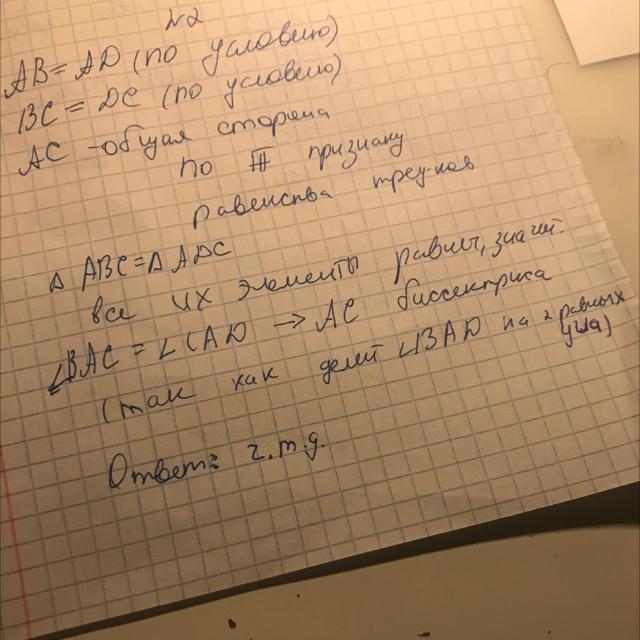 №2
AB = AD (по условию)
BC = DC (по условию)
AC - общая сторона
по III признаку
равенства треу-ков
△ ABC = △ ADC
все их элементы равны, значит
∠BAC = ∠CAD → AC биссектриса
(так как делит ∠BAD на 2 равных
угла)
Ответ: ч.т.д.